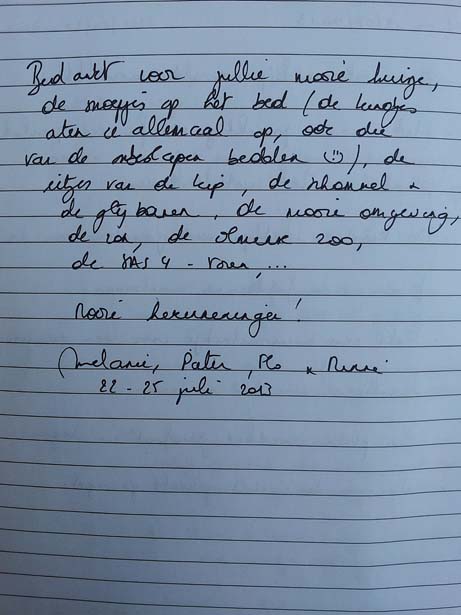 Bedankt voor jullie mooie huisje,
de snoepjes op het bed (de kindjes
aten ze allemaal op, ook die
van de onbeslapen bedden ☺), de
eitjes van de kip, de schommel &
de glijbanen, de mooie omgeving,
de zon, de Almense zoo,
de SAS 4-
Mooie herinneringen!
Melanie, Peter, Flo &
22 - 25 juli 2013